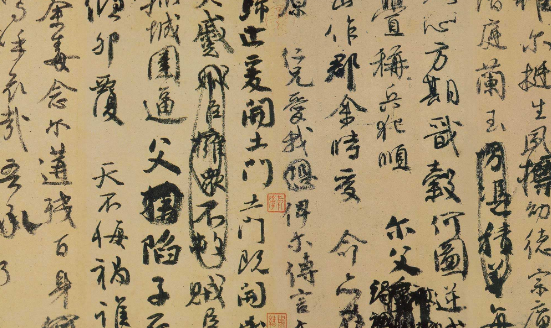 爾挺生夙標幼德宗
階庭蘭玉方憑積善每
心方期戩穀何圖逆
稱兵犯順爾父
山作郡余時受命亦
原仁兄愛我恐俾爾傳言
歸止爰開土門土門既開
大蹙賊臣擁眾不救賊臣
孤城圍逼父擒陷子死
傾卵覆天不悔禍誰
荼毒念爾遘殘百身何
嗚呼哀哉吾承